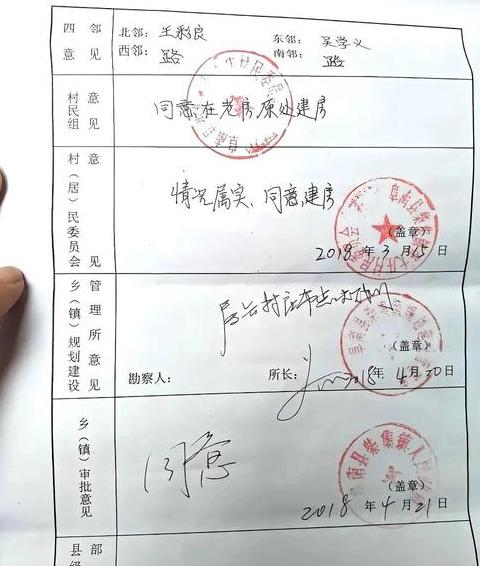 四邻意见
北邻：王彩良 东邻：吴学义
西邻：路 南邻：路
村民组意见
同意在老房原处建房
村（居）民委员会意见
情况属实、同意建房
（盖章）
2018 年 3 月 15 日
乡（镇）规划建设管理所意见
（盖章）
勘察人： 所长： 2018 年 4 月 20 日
乡（镇）审批意见
同意
阜南县柴集镇人民
（盖章）
2018 年 4 月 21 日
县级
部